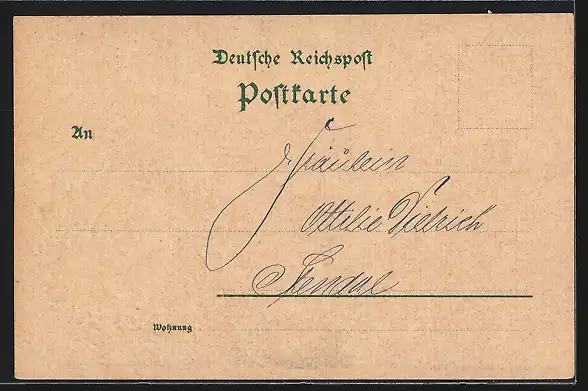 Deutsche Reichspost
Postkarte
An
Fräulein
Ottilie Dietrich
Stendal
Wohnung